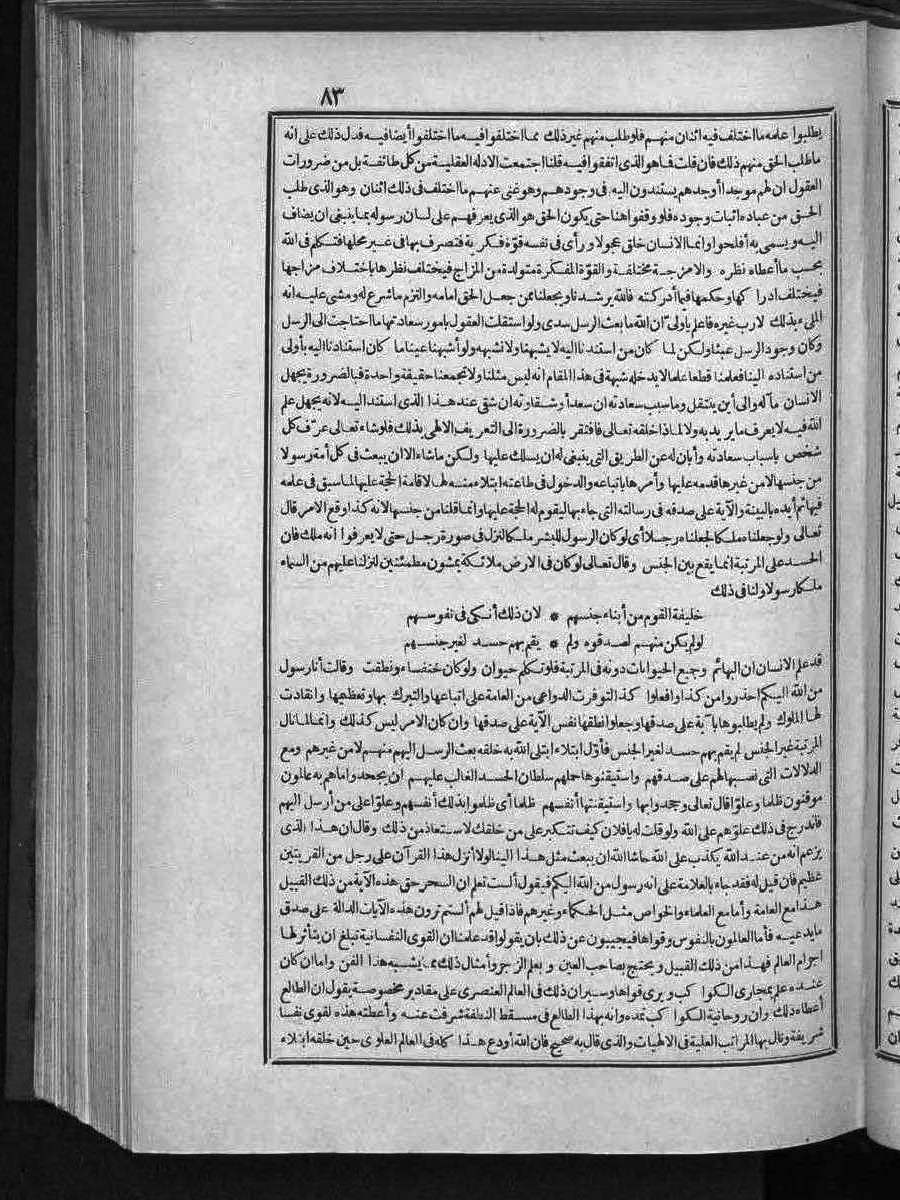 ٨٣
يطلبوا علمه ما اختلف فيه اثنان منهم فلو طلب منهم غير ذلك مما اختلفوا فيه ما اختلفوا أيضا فيه فدل ذلك على انه
ما طلب الحق منهم ذلك فان قلت فما هو الذى اتفقوا فيه قلنا اجتمعت الادلة العقلية من كل طائفة بل من ضرورات
العقول ان لهم موجدا أوجدهم يستندون اليه فى وجودهم وهو غنى عنهم ما اختلف فى ذلك اثنان وهو الذى طلب
الحق من عباده اثبات وجوده فلو وقفوا هنا حتى يكون الحق هو الذى يعرفهم على لسان رسوله بما ينبغى ان يضاف
اليه ويسمى به أفلحوا وانما الانسان خلق عجولا ورأى فى نفسه قوّة فكرية فتصرف بها فى غير محلها فتكلم فى الله
بحسب ما أعطاه نظره والامزجة مختلفة والقوّة المفكرة متولدة من المزاج فيختلف نظرها باختلاف مزاجها
فيختلف ادراكها وحكمها فيما أدركته فالله يرشدنا ويجعلنا ممن جعل الحق امامه والتزم ما شرع له ومشى عليه انه
الملىء بذلك لا رب غيره فاعلم يا ولىّ ان الله ما بعث الرسل سدى ولو استقلت العقول بامور سعادتها ما احتاجت الى الرسل
وكان وجود الرسل عبثا ولكن لما كان من استندنا اليه لا يشبهنا ولا نشبهه ولو أشبهنا عينا ما كان استنادنا اليه بأولى
من استناده الينا فعلمنا قطعا علما لا يدخله شبهة فى هذا المقام انه ليس مثلنا ولا تجمعنا حقيقة واحدة فبالضرورة يجهل
الانسان مآله والى أين ينتقل وما سبب سعادته ان سعد أو شقاوته ان شقى عند هذا الذى استند اليه لانه يجهل علم
الله فيه لا يعرف ما يريد به ولا لماذا خلقه تعالى فافتقر بالضرورة الى التعريف الالهى بذلك فلو شاء تعالى عرّف كل
شخص باسباب سعادته وأبان له عن الطريق التى ينبغى له ان يسلك عليها ولكن ما شاء الا ان يبعث فى كل أمة رسولا
من جنسها لا من غيرها قدمه عليها وأمرها باتباعه والدخول فى طاعته ابتلاء منه لها لاقامة الحجة عليها لما سبق فى علمه
فيها ثم أيده بالبينة والآية على صدقه فى رسالته التى جاء بها ليقوم له الحجة عليها وانما قلنا من جنسها لانه كذا وقع الامر قال
تعالى ولو جعلناه ملكا لجعلناه رجلا أى لو كان الرسول للبشر ملكا لنزل فى صورة رجل حتى لا يعرفوا انه ملك فان
الحسد على المرتبة انما يقع بين الجنس وقال تعالى لو كان فى الارض ملائكة يمشون مطمئنين لنزلنا عليهم من السماء
ملكا رسولا ولنا فى ذلك
خليفة القوم من أبناء جنسهم * لان ذلك أنكى فى نفوسهم
لو لم يكن منهم لصدقوه ولم * يقم بهم حسد لغير جنسهم
قد علم الانسان ان البهائم وجميع الحيوانات دونه فى المرتبة فلو تكلم حيوان ولو كان خنفساء ونطقت وقالت أنا رسول
من الله اليكم احذروا من كذا وافعلوا كذا لتوفرت الدواعى من العامة على اتباعها والتبرك بها وتعظيمها وانقادت
لها الملوك ولم يطلبوها بآية على صدقها وجعلوا نطقها نفس الآية على صدقها وان كان الامر ليس كذلك وانما لما نال
المرتبة غير الجنس لم يقم بهم حسد لغير الجنس فأوّل ابتلاء ابتلى الله به خلقه بعث الرسل اليهم منهم لا من غيرهم ومع
الدلالات التى نصبها لهم على صدقهم واستيقنوها حملهم سلطان الحسد الغالب عليهم ان يجحدوا ما هم به عالمون
موقنون ظلما وعلوّا قال تعالى وجحدوا بها واستيقنتها أنفسهم ظلما أى ظلموا بذلك أنفسهم وعلوّا على من أرسل اليهم
فاندرج فى ذلك علوّهم على الله ولو قلت له يا فلان كيف تتكبر على من خلقك لاستعاذ من ذلك وقال ان هذا الذى
يزعم انه من عند الله يكذب على الله حاشا الله ان يبعث مثل هذا الينا لولا أنزل هذا القرآن على رجل من القريتين
عظيم فان قيل له فقد جاء بالعلامة على انه رسول من الله اليكم فيقول ألست تعلم ان السحر حق هذه الآية من ذلك القبيل
هذا مع العامة وأما مع العلماء والخواص مثل الحكماء وغيرهم فاذا قيل لهم ألستم ترون هذه الآيات الدالة على صدق
ما يدعيه فأما العالمون بالنفوس وقواها فيجيبون عن ذلك بان يقولوا قد علمنا ان القوى النفسانية تبلغ ان يتأثر لها
اجرام العالم فهذا من ذلك القبيل ويحتج بصاحب العين وبعلم الزجر وأمثال ذلك مما يشبه هذا الفن واما ان كان
عنده علم بمجارى الكواكب ويرى قواها وسريان ذلك فى العالم العنصرى على مقادير مخصوصة يقول ان الطالع
أعطاه ذلك وان روحانية الكواكب تمده وانه بهذا الطالع فى مسقط النطفة شرفت عنه وأعطته هذه لقوى نفسا
شريفة ونال بها المراتب العلية فى الالهيات والذى قال به صحيح فان الله أودع هذا كله فى العالم العلوى حين خلقه ابتلاء